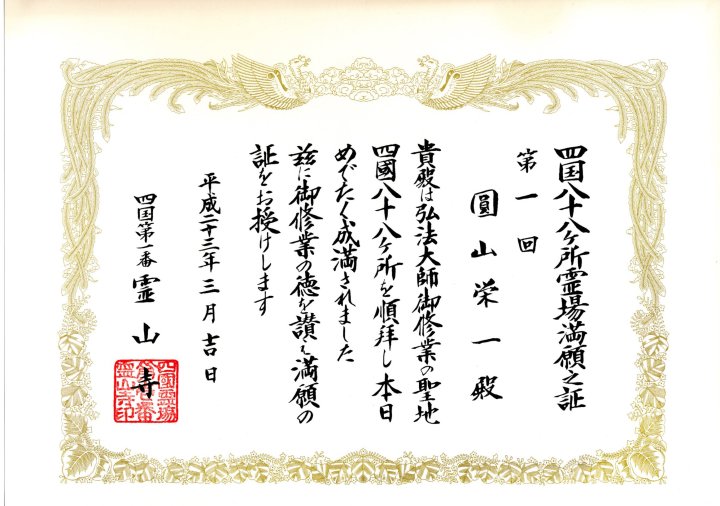 四国八十八ヶ所霊場満願之証
第一回
圓山栄一殿
貴殿は弘法大師御修業の聖地
四國八十八ヶ所を順拝し本日
めでたく成満されました
茲に御修業の徳を讃え満願の
証をお授けします
平成二十三年三月吉日
四国第一番霊山寺